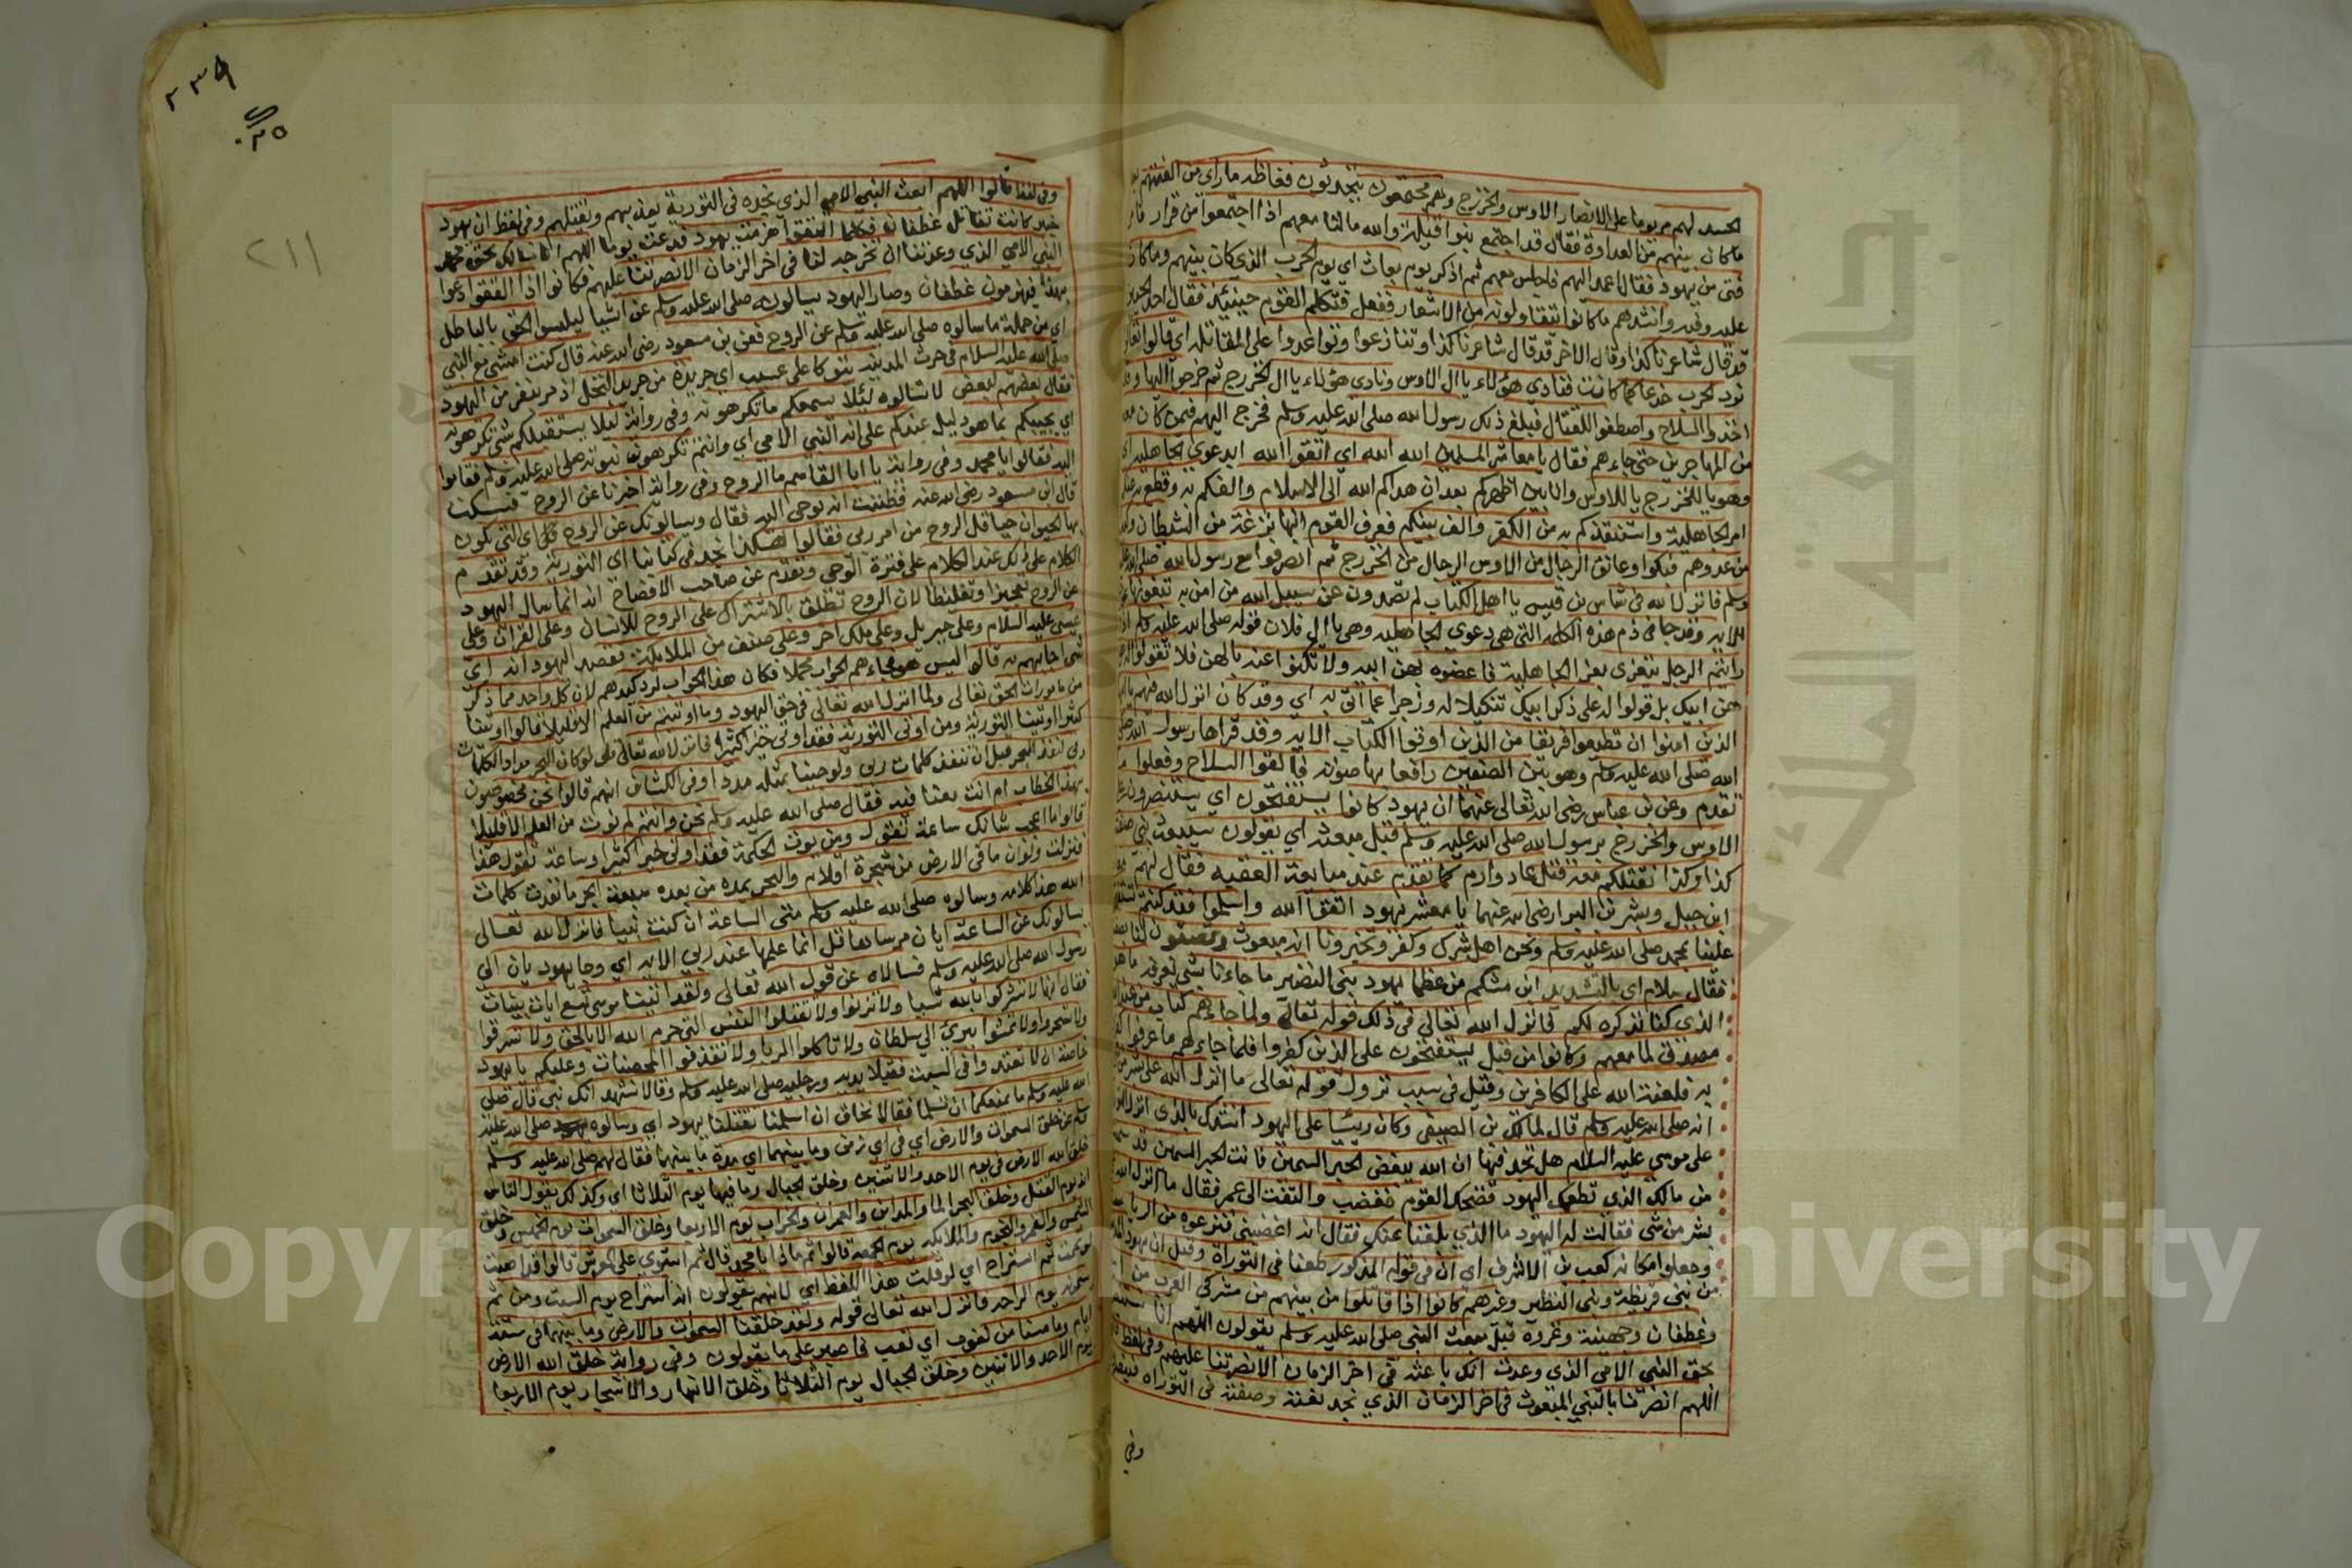 الحسد لهم مر يوما على الانصار الاوس والخزرج وهم مجتمعون يتحدثون فغاظه ما راى من الفتهم بعد
ما كان بينهم من العداوة فقال قد اجتمع بنوا قيلة والله مالنا معهم اذا اجتمعوا من قرار فامر
فتى من يهود فقال اعمد اليهم فاجلس معهم ثم اذكر يوم بعاث اي يوم الحرب الذي كان بينهم وما كان
عليه وفيه وانشدهم ما كانوا يتقاولون من الاشعار ففعل فتكلم القوم حينئذ فقال احد الحيين
قد قال شاعرنا كذا وقال الاخر قد قال شاعرنا كذا وتنازعوا وتواعدوا على المقاتلة اي قالوا تعالوا
نرد الحرب جذعا كما كانت فنادي هؤلاء ياال الاوس ونادي هؤلاء ياال الخزرج ثم خرجوا اليها وقد
اخذوا السلاح واصطفوا للقتال فبلغ ذلك رسول الله صلى الله عليه وسلم فخرج اليهم فيمن كان معه
من المهاجرين حتى جاءهم فقال يا معاشر المسلمين الله الله اي اتقوا الله ابدعوي الجاهلية اي
وهو يا للخزرج يا للاوس وانا بين اظهركم بعد ان هداكم الله الى الاسلام والفكم به وقطع به عنكم
امر الجاهلية واستنقذكم به من الكفر والف بينكم فعرف القوم انها نزغة من الشيطان وكيد
من عدوهم فبكوا وعانق الرجال من الاوس الرجال من الخزرج ثم انصرفوا مع رسول الله صلى الله عليه
وسلم فانزل الله في شاس بن قيس يا اهل الكتاب لم تصدون عن سبيل الله من امن به تبغونها عوجا
الاية وقد جا في ذم هذه الكلمة التي هي دعوي الجاهلية وهي ياال فلان قوله صلى الله عليه وسلم اذا
رايتم الرجل يتعزى بعزا الجاهلية فاعضوه بهن ابيه ولا تكنوا عنه بالهن فلا تقولوا
هن ابيك بل قولوا له على ذكر ابيك تنكيلا له وزجرا عما اتى به اي وقد كان انزل الله فيهم يا ايها
الذين امنوا ان تطيعوا فريقا من الذين اوتوا الكتاب الاية وقد قراها رسول
الله صلى الله عليه وسلم وهو بين الصفين رافعا بها صوته فالقوا السلاح وفعلوا ما
تقدم وعن بن عباس رضى الله تعالى عنهما ان يهود كانوا يستفتحون اي يستنصرون على
الاوس والخزرج برسول الله صلى الله عليه وسلم قبل مبعثه اي يقولون سيبعث نبي صفته
كذا وكذا نقتلكم معه قتل عاد وارم كما تقدم عند مبايعة العقبة فقال لهم معاذ
ابن جبل وبشر بن البرا رضي الله عنهما يا معشر يهود اتقوا الله واسلموا فقد كنتم تستفتحون
علينا بمحمد صلى الله عليه وسلم ونحن اهل شرك وكفر وتخبرونا انه مبعوث وتصفون لنا صفته
فقال سلام اي بالتشديد ابن مشكم من عظما يهود بني النضير ما جاءنا بشي نعرفه ما هو
الذي كنا نذكره لكم فانزل الله تعالى في ذلك قوله تعالى ولما جاءهم كتاب من عند الله
مصدق لما معهم وكانوا من قبل يستفتحون على الذين كفروا فلما جاءهم ما عرفوا كفروا
به فلعنة الله على الكافرين وقيل في سبب نزول قوله تعالى ما انزل الله على بشر من شي
انه صلى الله عليه وسلم قال لمالك بن الصيف وكان رييسا على اليهود انشدك بالذي انزل التوراة
على موسي عليه السلام هل تجد فيها ان الله يبغض الحبر السمين فانت الحبر السمين قد سمنت
من مالك الذي تطعمك اليهود فضحك القوم فغضب والتفت الى عمر فقال ما انزل الله على
بشر من شى فقالت له اليهود ما الذي بلغنا عنك فقال انه اغضبني فنزعوه من الرياسة
وجعلوا مكانه كعب بن الاشرف اي ان في قوله المذكور طعنا في التوراة وقيل ان يهود المدينة
من بني قريظة وبني النظير وغيرهم كانوا اذا قاتلوا من بينهم من مشركي العرب من اسد
وغطفان وجهينة وعذرة قبل مبعث النبي صلى الله عليه وسلم يقولون اللهم انا نستنصرك
بحق النبي الامي الذي وعدت انك باعثه في اخر الزمان الا نصرتنا عليهم وفي لفظ
اللهم انصرنا بالنبي المبعوث في اخر الزمان الذي نجد نعته وصفته في التوراة فينصرون
وفي
٢٣٩
٢١١
وفي لفظ قالوا اللهم ابعث النبي الامي الذي نجده في التورية يعذبهم ويقتلهم وفي لفظ ان يهود
خيبر كانت تقاتل غطفان فكلما التقوا هزمت يهود فدعت يوما اللهم انا نسالك بحق محمد
النبي الامي الذي وعدتنا ان تخرجه لنا في اخر الزمان الا نصرتنا عليهم فكانوا اذا التقوا دعوا
بهذا فيهزمون غطفان وصار اليهود يسالونه صلى الله عليه وسلم عن اشيا ليلبسوا الحق بالباطل
اي من جملة ما سالوه صلى الله عليه وسلم عن الروح فعن بن مسعود رضى الله عنه قال كنت امشي مع النبي
صلى الله عليه السلام في حرث المدينة يتوكا على عسيب اي جريدة من جريد النخل اذ مر بنفر من اليهود
فقال بعضهم لبعض لا تسالوه لئلا يسمعكم ما تكرهونه وفي رواية ليلا يستقبلكم بشي تكرهونه
اي يجيبكم بما هو دليل عندكم على انه النبي الامي اي وانتم تكرهون نبوته صلى الله عليه وسلم فقاموا
اليه فقالوا يا محمد وفي رواية يا ابا القاسم ما الروح وفي رواية اخبرنا عن الروح فسكت
قال ابن مسعود رضى الله عنه فظننت انه يوحى اليه فقال ويسالونك عن الروح اي التي تكون
بها الحيوان حيا قل الروح من امر ربي فقالوا هكذا نجد في كتابنا اي التورية وقد تقدم
الكلام على ذلك عند الكلام على فترة الوحي وتقدم عن صاحب الافصاح انه انما سال اليهود
عن الروح تعجيزا وتغليظا لان الروح تطلق بالاشتراك على الروح للانسان وعلى القران وعلى
عيسى عليه السلام وعلى جبريل وعلى ملك اخر وعلى صنف من الملائكة فقصد اليهود انه اي
شي اجابهم به قالوا ليس هو فجاءهم الجواب مجملا فكان هذا الجواب لرد كيدهم لان كل واحد مما ذكر
من مامورات الحق تعالى ولما انزل الله تعالى في حق اليهود وما اوتيتم من العلم الا قليلا قالوا اوتينا
كثيرا اوتينا التورية ومن اوتي التورية فقد اوتي خيرا كثيرا فانزل الله تعالى قل لو كان البحر مدادا لكلمات
ربي لنفد البحر قبل ان تنفد كلمات ربي ولو جينا بمثله مددا وفي الكشاف انهم قالوا نحن مخصوصون
بهذا الخطاب ام انت معنا فيه فقال صلى الله عليه وسلم نحن وانتم لم نوت من العلم الا قليلا
قالوا ما اعجب شانك ساعة تقول ومن يوت الحكمة فقد اوتي خيرا كثيرا وساعة تقول هذا
فنزلت ولو ان ما في الارض من شجرة اقلام والبحر يمده من بعده سبعة ابحر ما نفدت كلمات
الله هذا كلامه وسالوه صلى الله عليه وسلم متى الساعة ان كنت نبيا فانزل الله تعالى
يسالونك عن الساعة ايان مرساها قل انما علمها عند ربي الاية اي وجا يهود يان الى
رسول الله صلى الله عليه وسلم فسالاه عن قول الله تعالى ولقد اتينا موسى تسع ايات بينات
فقال لهما لا تشركوا بالله شيا ولا تزنوا ولا تقتلوا النفس التي حرم الله الا بالحق ولا تسرقوا
ولا تسحروا ولا تمشوا ببرئ الى سلطان ولا تاكلوا الربا ولا تقذفوا المحصنات وعليكم يا يهود
خاصة ان لا تعتدوا في السبت فقبلا يديه ورجليه صلى الله عليه وسلم وقالا نشهد انك نبي قال صلى
الله عليه وسلم ما يمنعكما ان تسلما فقالا نخاف ان اسلمنا تقتلنا يهود اي وسالوه صلى الله عليه
وسلم عن خلق السموات والارض اي في اي زمن وما بينهما اي مدة ما بينهما فقال لهم صلى الله عليه وسلم
خلق الله الارض في يوم الاحد والاثنين وخلق الجبال وما فيها يوم الثلاثا اي وكذلك يقول الناس
انه يوم الثقل وخلق البحر والما والمداين والعمران والخراب يوم الاربعا وخلق السموات يوم الخميس وخلق
الشمس والقمر والنجوم والملايكة يوم الجمعة قالوا ثم ماذا يا محمد قال ثم استوي على العرش قالوا قد اصبت
لو تممت ثم استراح اي لو قلت هذا اللفظ اي لانهم يقولون انه استراح يوم السبت ومن ثم
يسمونه يوم الراحة فانزل الله تعالى قوله ولقد خلقنا السموات والارض وما بينهما في ستة
ايام وما مسنا من لغوب اي تعب فاصبر على ما يقولون وفي رواية خلق الله الارض
يوم الاحد والاثنين وخلق الجبال يوم الثلاثا وخلق الانهار والاشجار يوم الاربعا